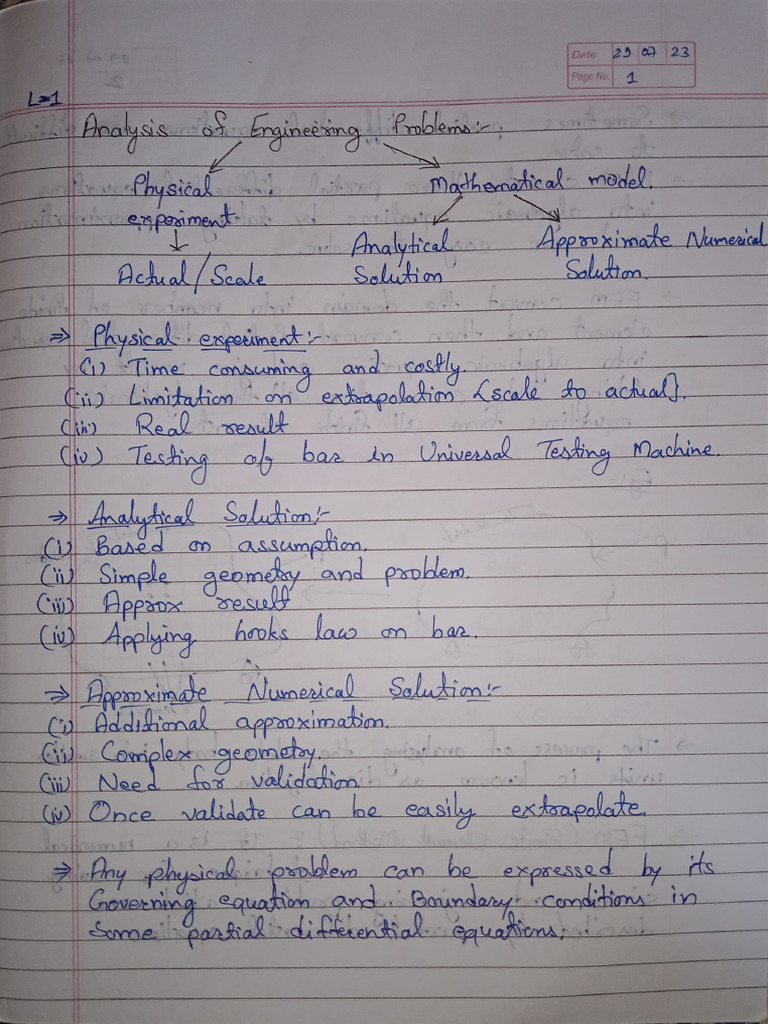 Date 29 07 23
Page No. 1
L=1
Analysis of Engineering Problems:-
Physical Mathematical model.
experiment
Analytical Approximate Numerical
Actual/Scale Solution Solution.
⇒ Physical experiment:-
(i) Time consuming and costly.
(ii) Limitation on extrapolation [scale to actual].
(iii) Real result
(iv) Testing of bar in Universal Testing Machine.
→ Analytical Solution:-
(i) Based on assumption.
(ii) Simple geometry and problem.
(iii) Approx result
(iv) Applying hooks law on bar.
⇒ Approximate Numerical Solution:-
(i) Additional approximation.
(ii) Complex geometry.
(iii) Need for validation.
(iv) Once validate can be easily extrapolate.
⇒ Any physical problem can be expressed by its
Governing equation and Boundary conditions in
some partial differential equations.